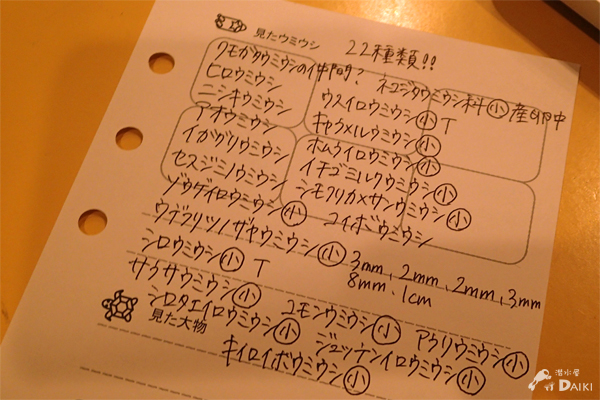 見たウミウシ 22種類!!
クモガタウミウシの仲間? ネコジタウミウシ科 小 産卵中
ヒロウミウシ ウスイロウミウシ 小 T
ニシキウミウシ キャラメルウミウシ 小
アオウミウシ ホムライロウミウシ 小
イガグリウミウシ イチゴミルクウミウシ 小
セスジミノウミウシ シモフリカメサンウミウシ 小
ゾウゲイロウミウシ 小 コイボウミウシ
ウデフリツノザヤウミウシ 小 3mm、2mm、2mm、3mm
8mm、1cm
シロウミウシ 小 T
サラサウミウシ 小 コモンウミウシ 小 アラリウミウシ 小
シロタエイロウミウシ 小 ジュッテンイロウミウシ 小
見た大物 キイロイボウミウシ 小
潜水屋
DAIKI